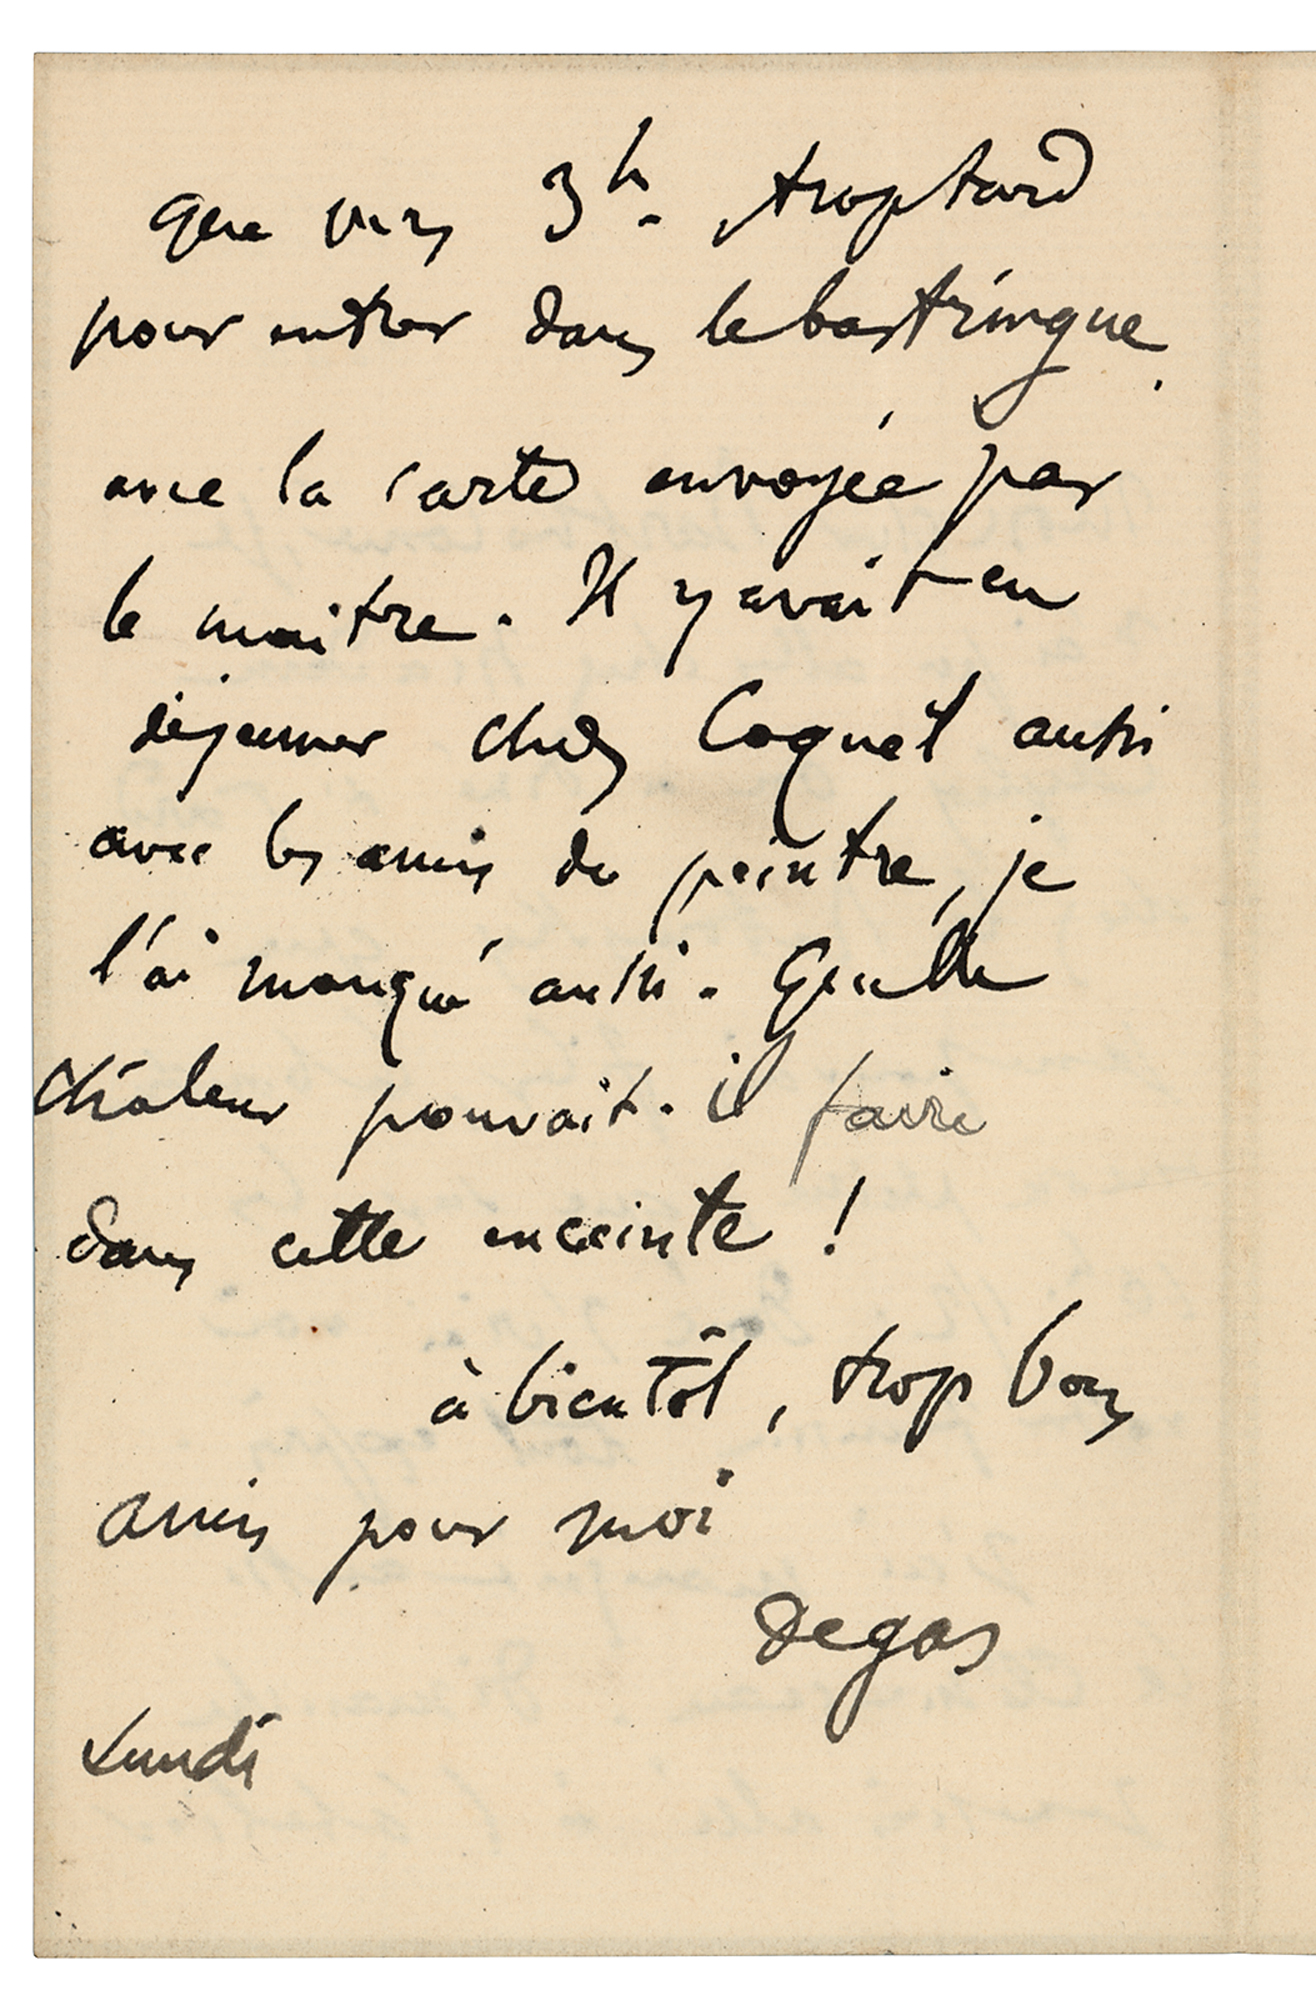 que vers 3h. trop tard
pour entrer dans le bastringue,
avec la carte envoyée par
le maitre. Il y avait eu
déjeuner chez Coquet aussi
avec les amis du peintre, je
l'ai manqué aussi. Quelle
chaleur pouvait-il faire
dans cette enceinte !
à bientôt, trop bons
amis pour moi
Degas
Lundi